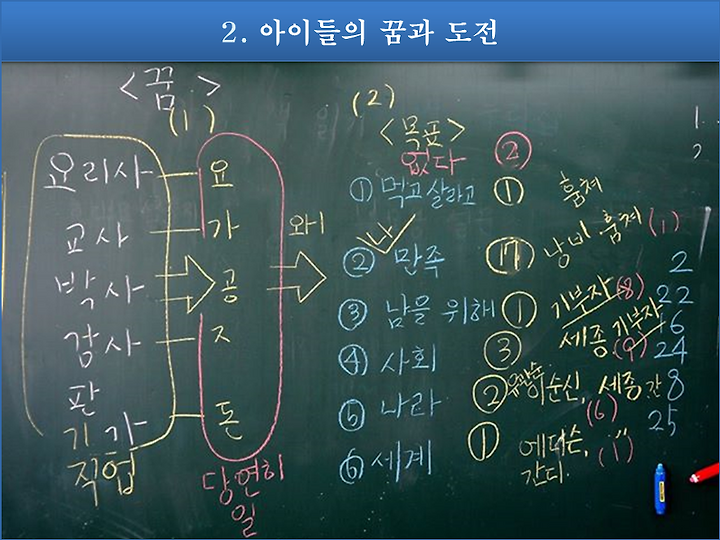 2. 아이들의 꿈과 도전
<꿈>
(1)
요리사 요
교사 가
박사 공
감사 ㅈ
판
기 가 돈
직업
당연히
일
와니
(2)
<목표>
없다 ②
① 먹고 살라고 ① 훔쳐
나
② 만족 ⑰ 낭비 훔쳐 (1)
2
③ 남을 위해 ① 기부자 (8) 22
기부자 16
④ 사회 ③ 세종 (9) 24
⑤ 나라 ② 유관순 이순신, 세종 간 8
(6) 25
⑥ 세계 ① 에디슨, (1)
간디.
1.
2